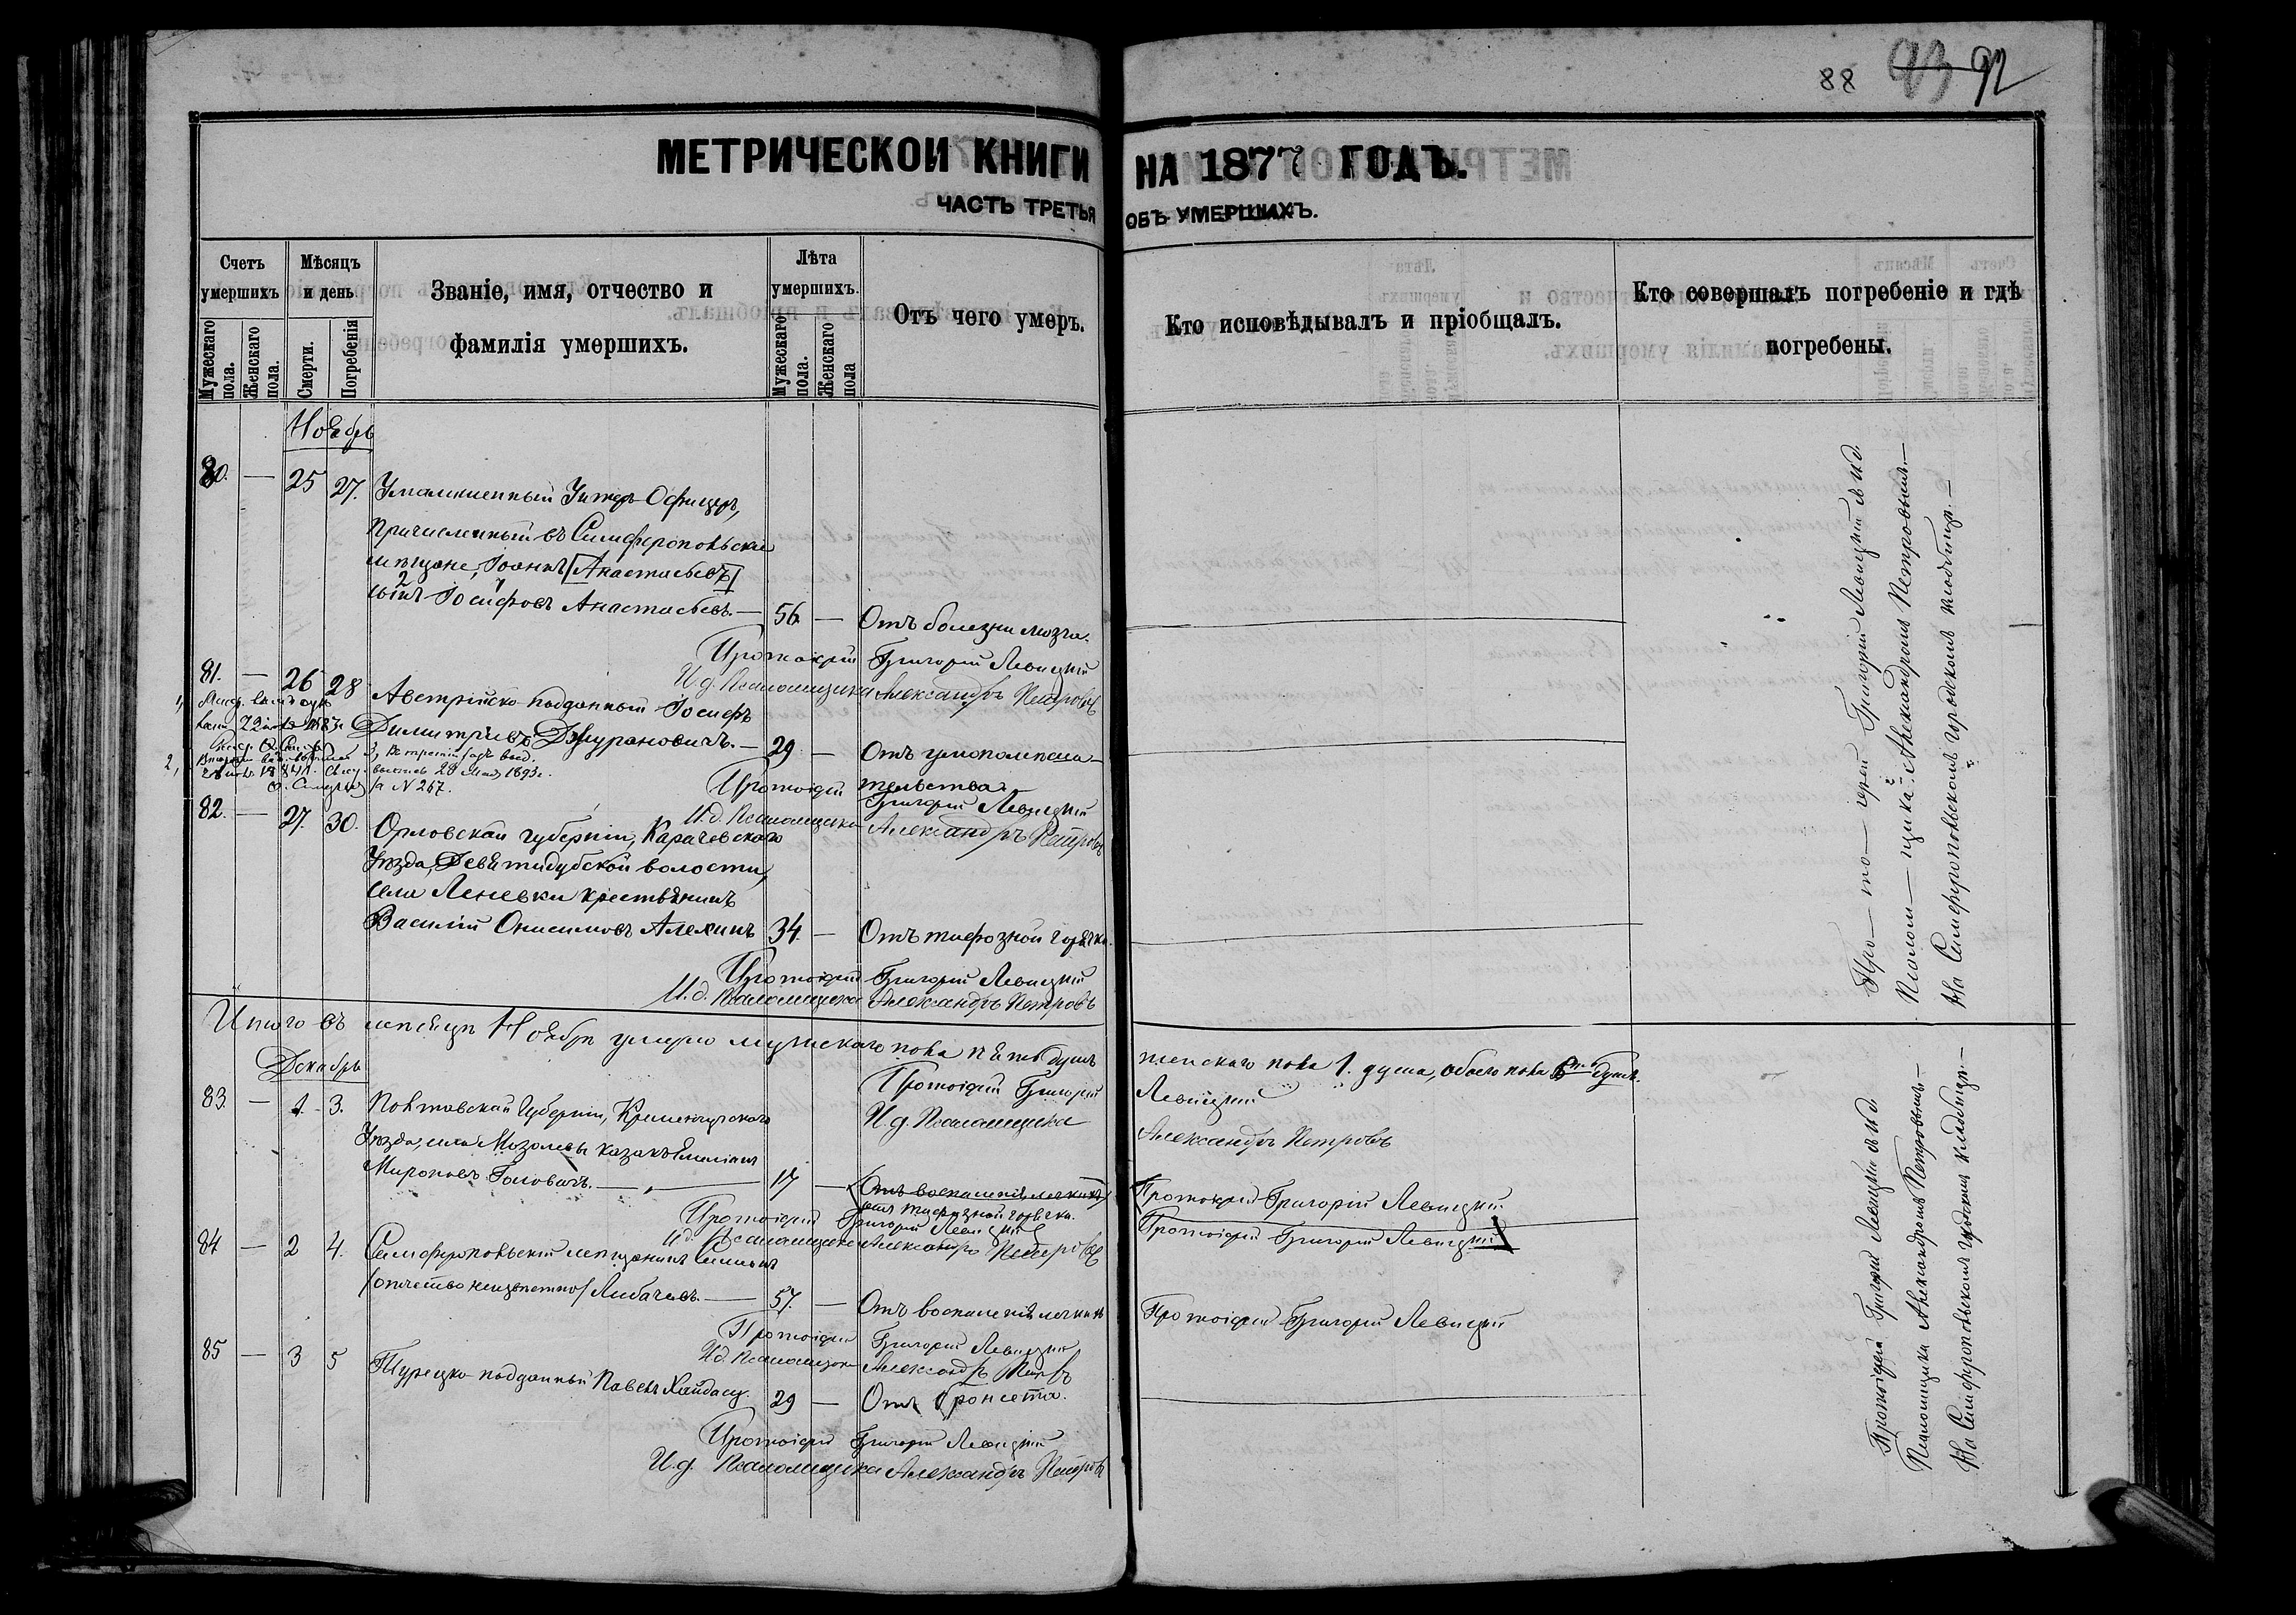 88 93 92
МЕТРИЧЕСКОЙ КНИГИ НА 1877 ГОДЪ.
ЧАСТЬ ТРЕТЬЯ ОБЪ УМЕРШИХЪ.
Счетъ умершихъ
Мѣсяцъ и день
Званіе, имя, отчество и фамилія умершихъ.
Лѣта умершихъ.
Отъ чего умеръ.
Кто исповѣдывалъ и пріобщалъ.
Кто совершалъ погребеніе и гдѣ погребены.
Мужескаго пола.
Женскаго пола.
Смерти.
Погребенія
Мужескаго пола.
Женскаго пола
Ноябрь
80. — 25 27. Умалишенный Унтеръ-Офицеръ,
причисленный въ Симферопольскіе
мѣщане, Іоаннъ [Анастасьевъ]
сынъ Іосифовъ Анастасьевъ. — 56 — Отъ болезни мозга.
Протоіерей Григорій Левицкій
И. д. Псаломщика Александръ Петровъ
81. — 26 28 Австрійско-подданный Іосифъ
Димитріевъ Джурановичъ. — 29 — Отъ умопомѣша-
тельства.
выпись 28 Мая 1893 г.
за N 267.
Протоіерей Григорій Левицкій
И. д. Псаломщика Александръ Петровъ
82. — 27. 30. Орловской губерніи, Карачевскаго
Уѣзда, Девятидубской волости,
села Леневки крестьянинъ
Василій Онисимовъ Алехинъ 34. — Отъ тифозной горячки.
Протоіерей Григорій Левицкій
И. д. Псаломщика Александръ Петровъ
Про—то—іерей Григорій Левицкій и И. д.
Псалом—щика Александромъ Петровымъ.—
На Симферопольскомъ городскомъ кладбищѣ.—
Итого въ мѣсяцѣ Ноябрѣ умерло мужскаго пола пять душъ женскаго пола 1. душа, обоего пола 6ть душъ.
Протоіерей Григорій Левицкій
И. д. Псаломщика Александръ Петровъ
Декабрь
83. — 1. 3. Полтавской Губерніи, Кременчугскаго
Уѣзда, села Мозолевы казакъ Емиліанъ
Мироновъ Головачъ. — 17 — Отъ воспаленія легкихъ
отъ тифозной горячки.
Протоіерей Григорій Левицкій
Протоіерей Григорій Левицкій
И. д. Псаломщика Александръ Петровъ
Протоіерей Григорій Левицкій
84 — 2 4. Симферопольскій мѣщанинъ Симеонъ
/отчество неизвестно/ Либачевъ. — 57. — Отъ воспаленія легкихъ
Протоіерей Григорій Левицкій
Протоіерей Григорій Левицкій
И. д. Псаломщика Александръ Петровъ
85 — 3 5 Турецко-подданный Павелъ Хайдасу. 29 — Отъ бронсета.
Протоіерей Григорій Левицкій
И. д. Псаломщика Александръ Петровъ
Протоіерей Григорій Левицкій и И. д.
Псаломщика Александромъ Петровымъ.—
На Симферопольскомъ градскомъ кладбищѣ.—